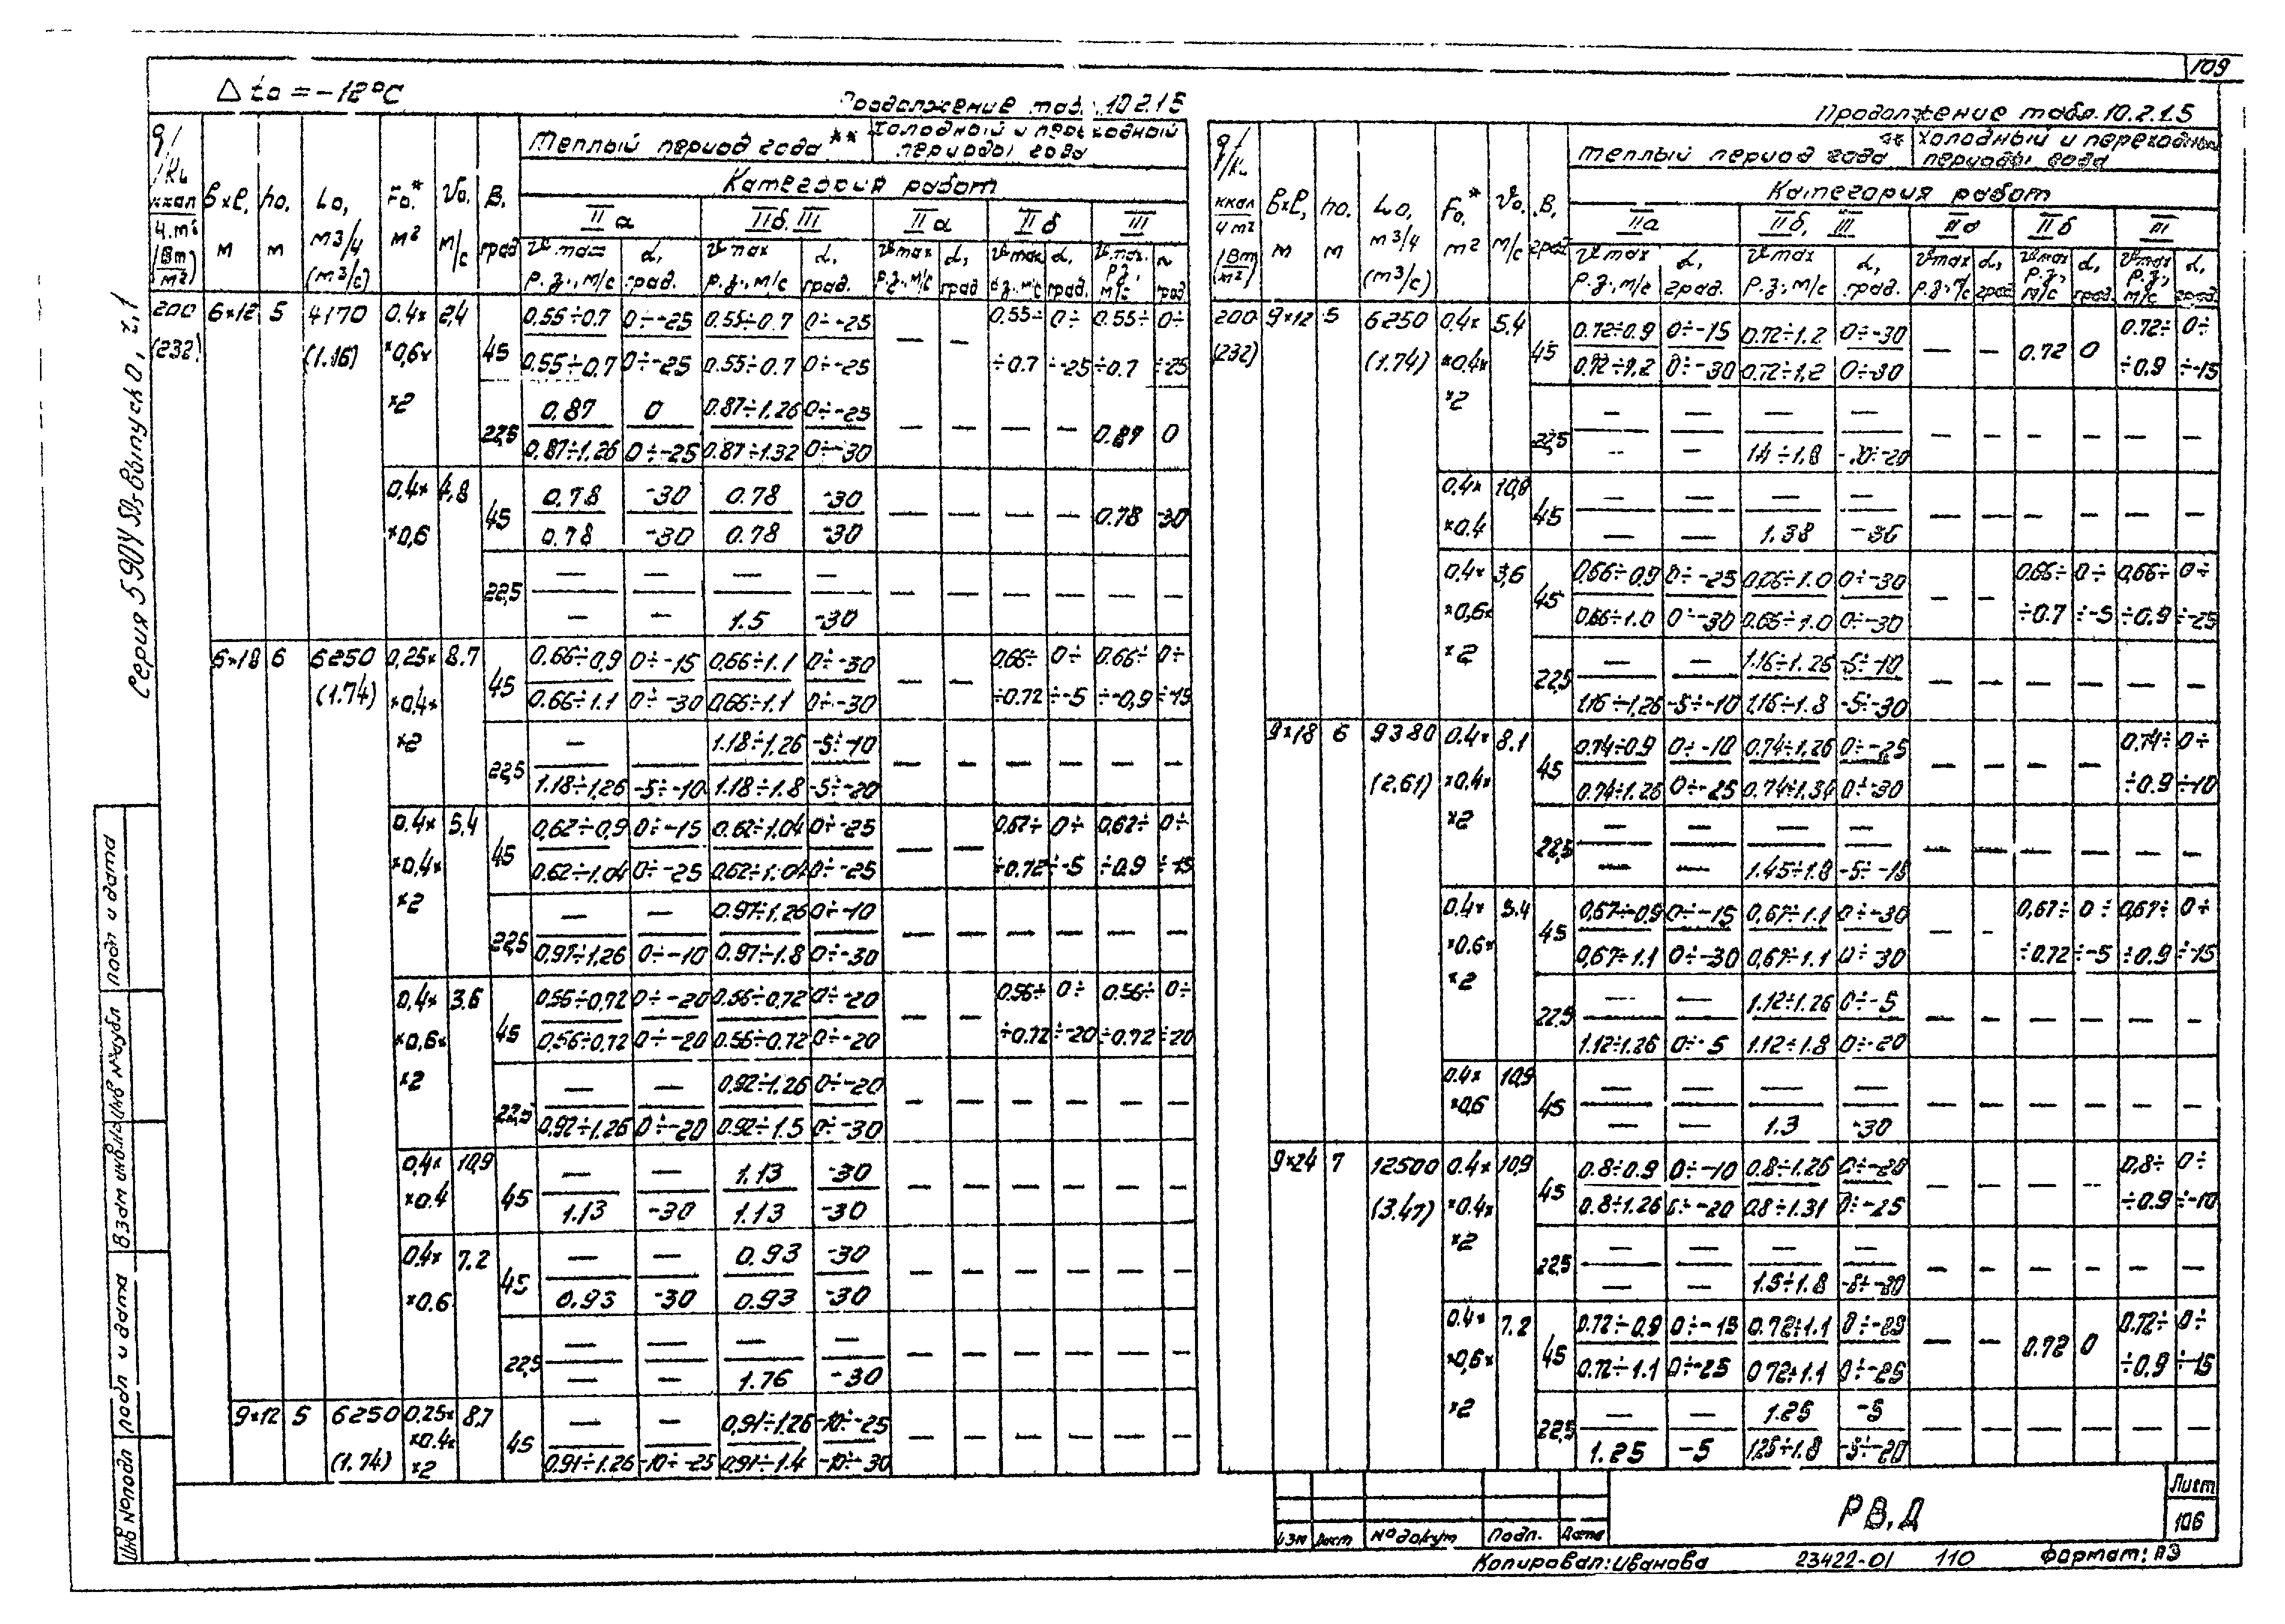 109
Δ to = -12°C
Продолжение табл. 10.2.1.5
Теплый период года ** Холодный и переходный периоды года
Категория работ
IIа IIб, III IIа IIб III
bxl, м
ho, м
Lo, м3/ч (м3/с)
Fo,* м2
Vo, м/с
В, град
200 6×12 5 4170 0.4× 2,4 45 0.55÷0.7 0÷-25 0.55÷0.7 0÷-25 — — 0.55÷ 0÷ 0.55÷ 0÷
(232) (1.16) ×0,6× 0.55÷0.7 0÷-25 0.55÷0.7 0÷-25 ÷0.7 ÷-25 ÷0.7 ÷-25
×2 22,5 0.87 0 0.87÷1.26 0÷-25 — — — — 0.87 0
0.87÷1.26 0÷-25 0.87÷1.32 0÷-30
0,4× 4,8 45 0.78 -30 0.78 -30 — — — — 0.78 -30
×0,6 0.78 -30 0.78 -30
22,5 — — — — — — — — — —
— — 1.5 -30
6×18 6 6250 0,25× 8.7 45 0.66÷0,9 0÷-15 0.66÷1.1 0÷-30 — — 0.66÷ 0÷ 0.66÷ 0÷
(1.74) ×0,4× 0.66÷1.1 0÷-30 0.66÷1.1 0÷-30 ÷0.72 ÷-5 ÷0,9 ÷-15
×2 22,5 — 1.18÷1,26 -5÷-10 — — — — — —
1.18÷1,26 -5÷-10 1.18÷1.8 -5÷-20
0.4× 5,4 45 0,62÷0,9 0÷-15 0.62÷1.04 0÷-25 — — 0,62÷ 0÷ 0,62÷ 0÷
×0,4× 0.62÷1.04 0÷-25 0,62÷1.04 0÷-25 ÷0.72 ÷-5 ÷0.9 ÷-15
×2 22,5 — — 0.97÷1.26 0÷-10 — — — — — —
0,97÷1,26 0÷-10 0.97÷1.8 0÷-30
0,4× 3.6 45 0.56÷0,72 0÷-20 0.56÷0.72 0÷-20 — — 0.56÷ 0÷ 0.56÷ 0÷
×0,6× 0,56÷0,72 0÷-20 0.56÷0.72 0÷-20 ÷0.72 ÷-20 ÷0.72 ÷20
×2 22,5 — — 0.92÷1.26 0÷-20 — — — — — —
0,92÷1,26 0÷-20 0.92÷1.5 0÷-30
0,4× 10,9 45 — — 1.13 -30 — — — — — —
×0.4 1.13 -30 1.13 -30
0,4× 7.2 45 — — 0.93 -30 — — — — — —
×0.6 0.93 -30 0.93 -30
22,5 — — — — — — — — — —
— — 1.76 -30
9×12 5 6250 0.25× 8,7 45 — — 0,91÷1.26 -10÷-25 — — — — — —
(1.74) ×0.4× ×2 0.91÷1.26 -10÷-25 0,91÷1.4 -10÷-30
Продолжение табл. 10.2.1.5
теплый период года ** Холодный и переходный периоды года
Категория работ
IIа IIб, III IIа IIб III
200 9×12 5 6250 0,4× 5.4 45 0.72÷0.9 0÷-15 0.72÷1.2 0÷-30 — — 0.72 0 0.72÷ 0÷
(232) (1.74) ×0.4× 0.72÷1,2 0÷-30 0.72÷1,2 0÷-30 ÷0.9 ÷-15
×2 22,5 — — — — — — — — — —
— — 1.4÷1.8
0.4× 10,8 45 — — — — — — — — — —
×0.4 — — 1.38
0.4× 3,6 45 0,66÷0,9 0÷-25 0,66÷1.0 0÷-30 — — 0.66÷ 0÷ 0,66÷ 0÷
×0,6× 0,66÷1.0 0÷-30 0.66÷1.0 0÷-30 ÷0.7 ÷-5 ÷0.9 ÷-25
×2 22,5 — — 1.16÷1.26 -5÷-10 — — — — — —
1,16÷1,26 -5÷-10 1,16÷1.8 -5÷-30
9×18 6 9380 0.4× 8.1 45 0.74÷0.9 0÷-10 0.74÷1.26 0÷-25 — — — — 0.74÷ 0÷
(2.61) ×0.4× 0.74÷1.26 0÷-25 0.74÷1.34 0÷-30 ÷0.9 ÷-10
×2 22,5 — — — — — — — — — —
— — 1.45÷1.8 -5÷-15
0.4× 5.4 45 0,67÷0,9 0÷-15 0,67÷1.1 0÷-30 — — 0,67÷ 0÷ 0,67÷ 0÷
×0.6× 0,67÷1.1 0÷-30 0,67÷1.1 0÷30 ÷0.72 ÷-5 ÷0.9 ÷-15
×2 22,5 — — 1.12÷1.26 0÷-5 — — — — — —
1.12÷1.26 0÷-5 1.12÷1.8 0÷-20
0.4× 10,9 45 — — — — — — — — — —
×0,6 — — 1.3 -30
9×24 7 12500 0.4× 10,9 45 0.8÷0.9 0÷-10 0.8÷1.26 0÷-20 — — — — 0,8÷ 0÷
(3.47) ×0.4× 0.8÷1.26 0÷-20 0,8÷1.31 0÷-25 ÷0.9 ÷-10
×2 22,5 — — — — — — — — — —
— — 1.5÷1.8
0.4× 7.2 45 0.72÷0,9 0÷-15 0.72÷1.1 0÷-25 — — 0.72 0 0.72÷ 0÷
×0,6× 0.72÷1.1 0÷-25 0.72÷1.1 0÷-25 ÷0.9 ÷-15
×2 22,5 — — 1.25 -5 — — — — — —
1.25 -5 1,25÷1.8 -5÷-20
Серия 5.904-50. Выпуск 0, ч.1
Инв № подл Подп и дата Взам инв.№ Инв № дубл Подп и дата
Изм Лист № докум Подп. Дата
РВ.Д
Лист
106
Копировал: Иванова 23422-01 110 Формат: А3